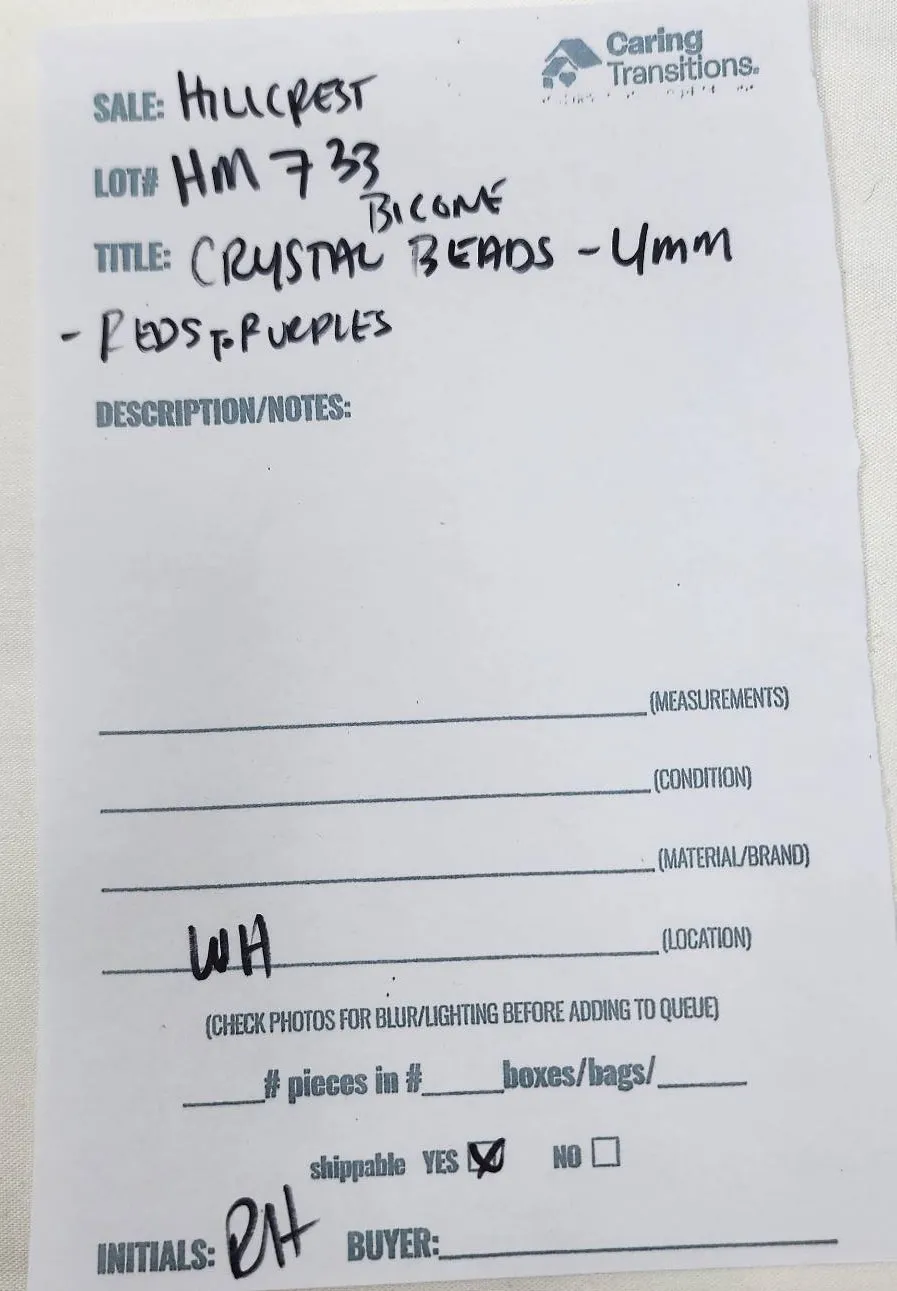 Caring
Transitions.
SALE: HILLCREST
LOT# HM 733
BICONE
TITLE: CRYSTAL BEADS - 4mm
- REDS To PURPLES
DESCRIPTION/NOTES:
(MEASUREMENTS)
(CONDITION)
(MATERIAL/BRAND)
WH (LOCATION)
(CHECK PHOTOS FOR BLUR/LIGHTING BEFORE ADDING TO QUEUE)
____# pieces in #____boxes/bags/____
shippable YES ☒ NO ☐
INITIALS: RH BUYER: